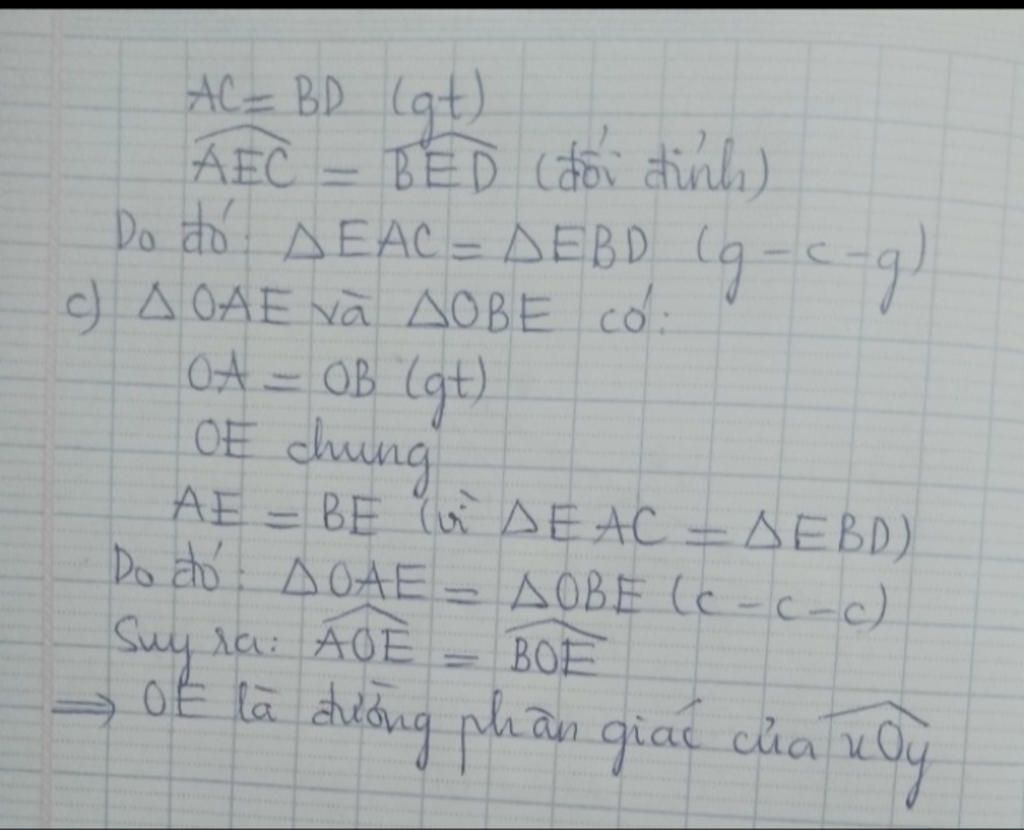 AC = BD (gt)
AEC = BED (đối đỉnh)
Do đó: ΔEAC = ΔEBD (g-c-g)
c) ΔOAE và ΔOBE có:
OA = OB (gt)
OE chung
AE = BE (vì ΔEAC = ΔEBD)
Do đó: ΔOAE = ΔOBE (c-c-c)
Suy ra: AOE = BOE
⇒ OE là đường phân giác của xOy